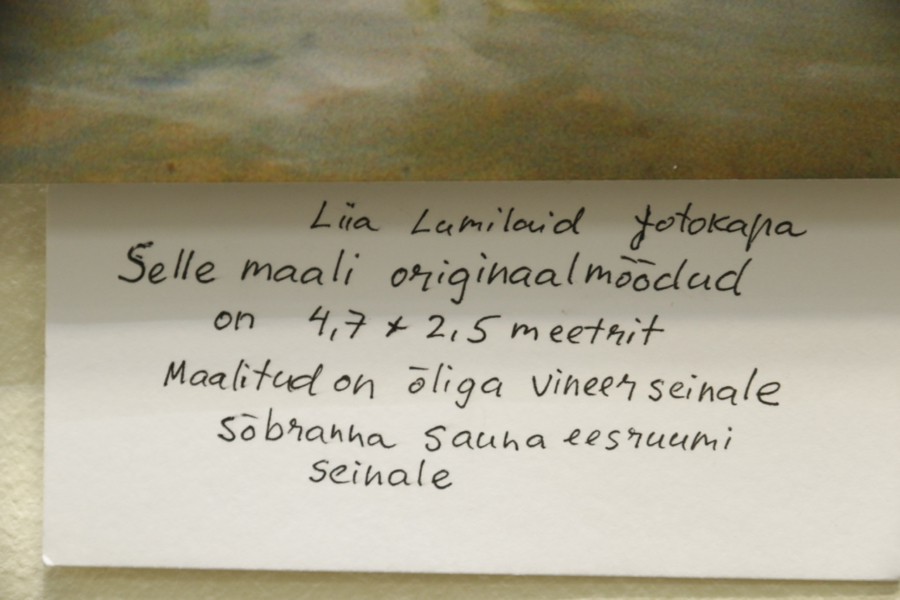 Liia Lumilaid fotokapa
Selle maali originaalmõõdud
on 4,7 x 2,5 meetrit
Maalitud on õliga vineerseinale
sõbranna sauna eesruumi
seinale